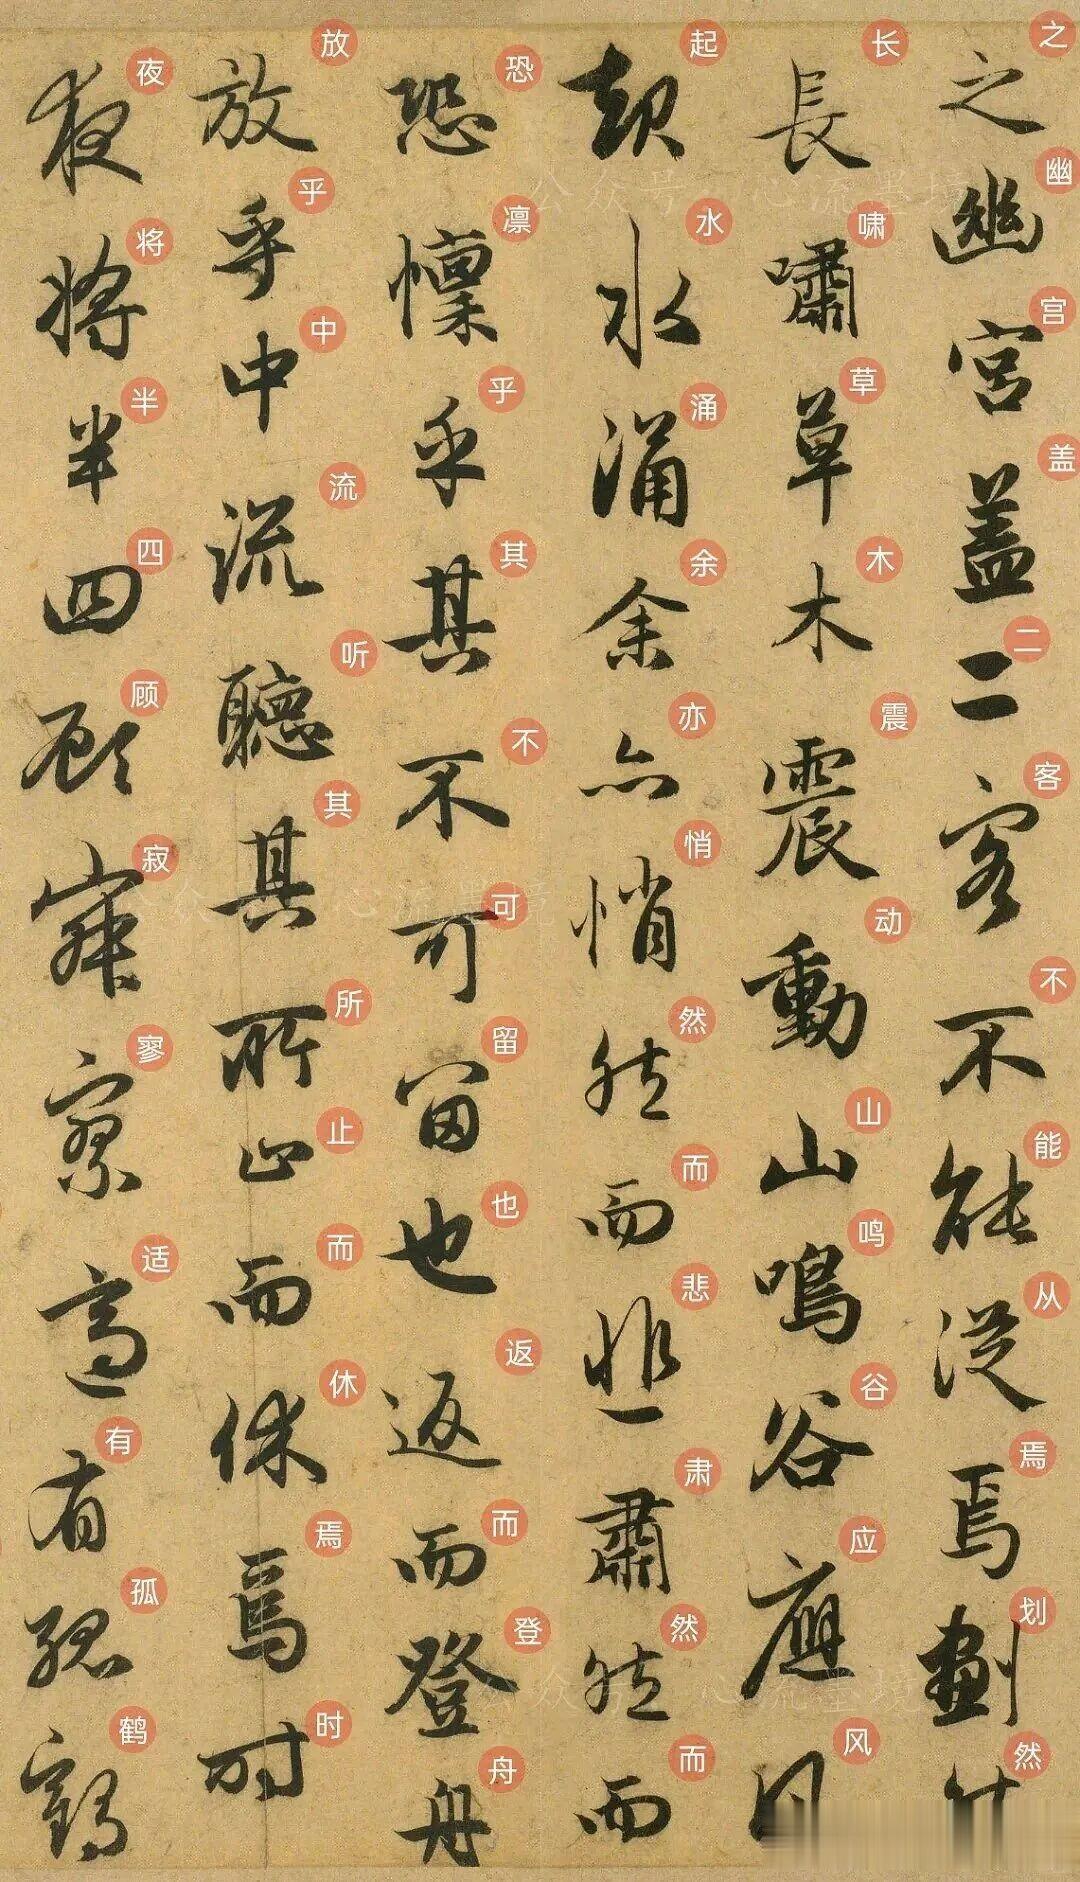 之幽宫盖二客不能从焉划然
之幽宮盖二客不能從焉劃然
长啸草木震动山鸣谷应风
長嘯草木震動山鳴谷應風
起水涌余亦悄然而悲肃然而
起水涌余亦悄然而悲肅然而
恐凛乎其不可留也返而登舟
恐懍乎其不可留也返而登舟
放乎中流听其所止而休焉时
放乎中流聽其所止而休焉時
夜将半四顾寂寥适有孤鹤
夜將半四顧寂寥適有孤鶴